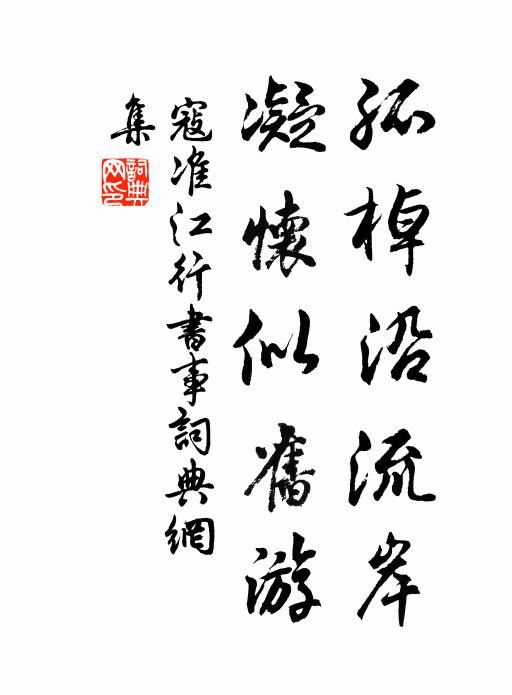 孤棹沿流岸
凝懷似舊游
寇准江行書事詞典網
集
詞典
网印